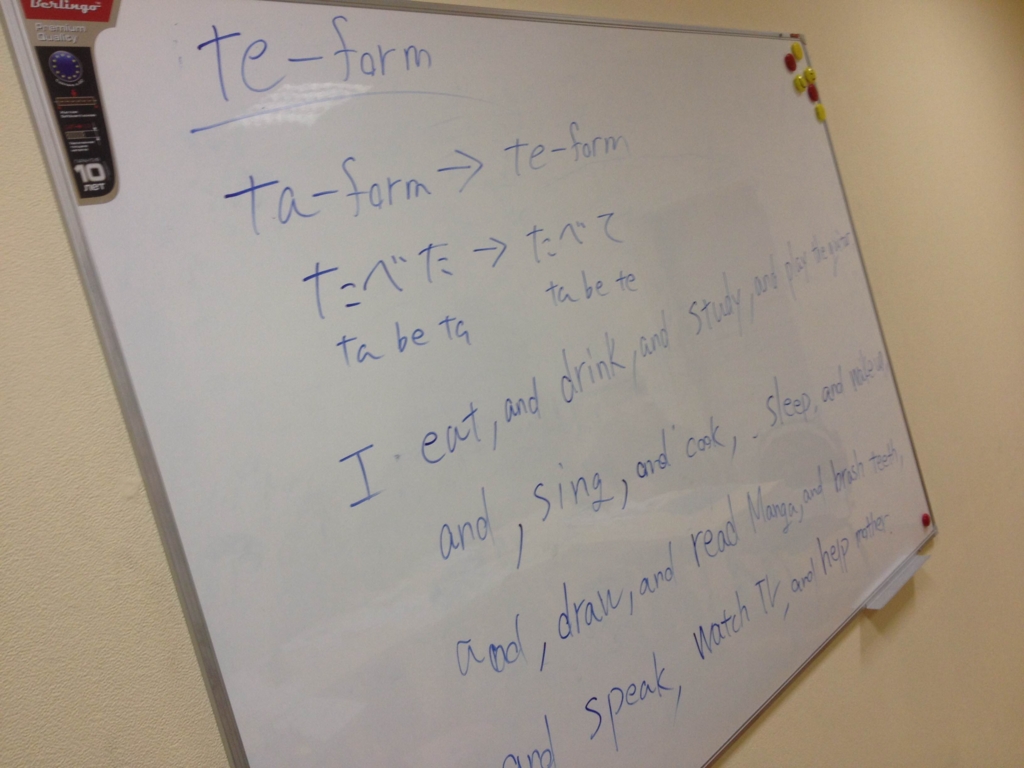 Berlingo
Premium
quality
10
лет
te-form
ta-form → te-form
たべた → たべて
ta be ta ta be te
I eat, and drink, and study, and play the
and, sing, and cook, sleep, and wake up
and, draw, and read Manga, and brush teeth,
and speak, watch TV, and help mother.